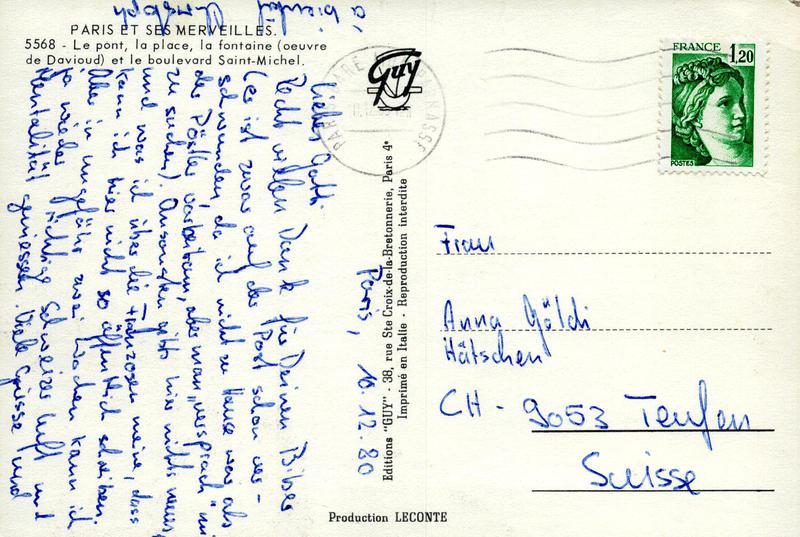 PARIS ET SES MERVEILLES.
5568 - Le pont, la place, la fontaine (oeuvre
de Davioud) et le boulevard Saint-Michel.
Guy
FRANCE
1,20
POSTES
Paris, 10.12.80
Liebes Gotti
Recht vielen Dank für Deinen Biber
(er ist zwar auf der Post schon ver-
schwunden, da ich nicht zu Hause war als
der Pöstler vorbeikam, aber man "versprach" mir
zu suchen). Ansonsten gibts hier nichts neues,
und was ich über die Franzosen meine, dass
kann ich hier nicht so öffentlich schreiben.
Aber in ungefähr zwei Wochen kann ich
ja wieder richtige Schweizer Luft und
Mentalität geniessen. Viele Grüsse und
à bientôt
Christoph
Editions "GUY" - 38, rue Ste Croix-de-la-Bretonnerie, Paris 4e
Imprimé en Italie - Reproduction interdite
Frau
Anna Göldi
Hätschen
CH - 9053 Teufen
Suisse
Production LECONTE